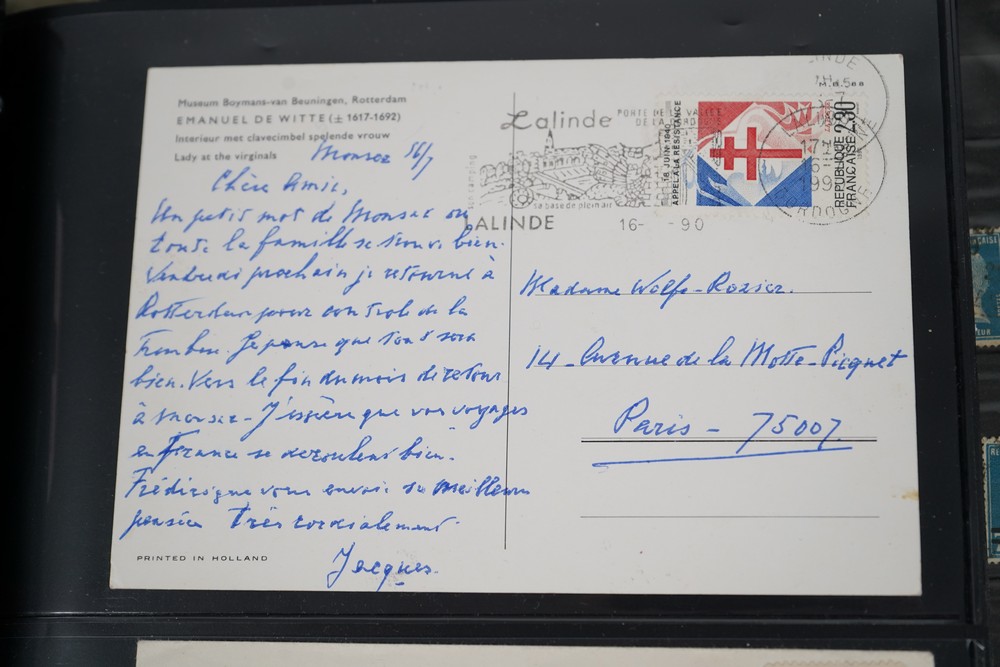 Museum Boymans-van Beuningen, Rotterdam
EMANUEL DE WITTE (± 1617-1692)
Interieur met clavecimbel spelende vrouw
Lady at the virginals
Monsac 16/7
Chère Amie,
Un petit mot de Monsac où
toute la famille se trouve bien.
Vendredi prochain je retourne à
Rotterdam pour control de la
Je pense que tout sera
bien. Vers le fin du mois de retour
à Monsac - J'espère que vos voyages
en France se deroulent bien.
Frédérique vous envoie se meilleurs
pensées Très cordialement
Jacques.
PRINTED IN HOLLAND
Lalinde
PORTE DE LA VALLÉE
DE LA DORDOGNE
sa base de plein air
LALINDE
16- -90
18 JUIN 1940
APPEL A LA RÉSISTANCE
REPUBLIQUE
FRANÇAISE 2,30
DORDOGNE
Madame Wolfe-Rozier.
14 - Avenue de la Motte-Picquet
Paris - 75007